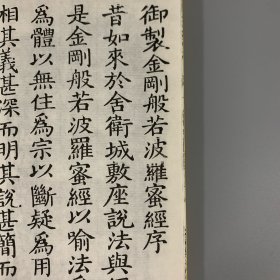 御製金剛般若波羅蜜經序
昔如來於舍衛城敷座說法與
是金剛般若波羅蜜經以喻法
爲體以無住爲宗以斷疑爲用
相其義甚深而明其説甚簡而